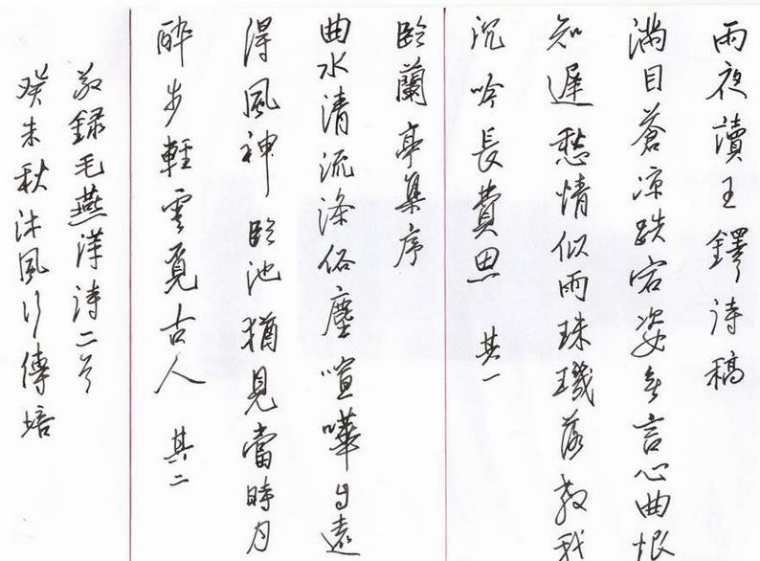 雨夜讀王鐸詩稿
滿目蒼凉跌宕姿無言心曲恨
知遲愁情似雨珠璣落教我
沉吟長費思 其一
臨蘭亭集序
曲水清流滌俗塵喧嘩自遠
得風神臨池猶見當時月
醉步輕雲覓古人 其二
敬録毛燕詩二首
癸未秋沐風行傳培